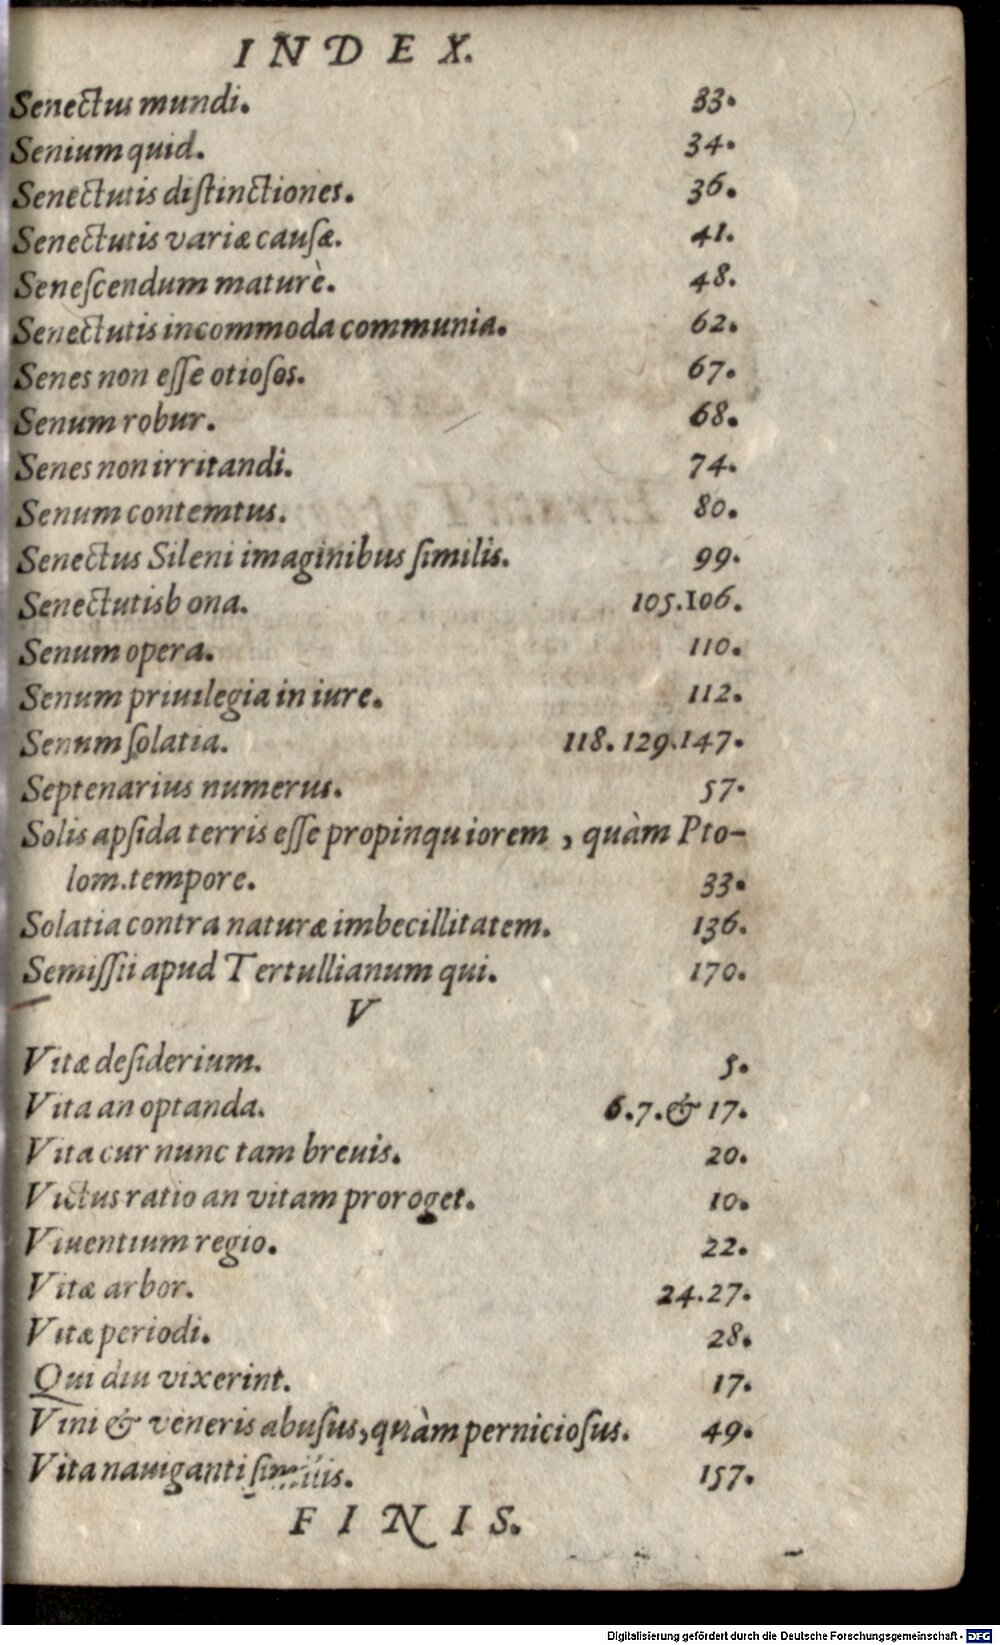 INDEX.
Senectus mundi. 33.
Senium quid. 34.
Senectutis diſtinctiones. 36.
Senectutis variæ cauſæ. 41.
Seneſcendum maturè. 48.
Senectutis incommoda communia. 62.
Senes non eſſe otioſos. 67.
Senum robur. 68.
Senes non irritandi. 74.
Senum contemtus. 80.
Senectus Sileni imaginibus ſimilis. 99.
Senectutisb ona. 105.106.
Senum opera. 110.
Senum priuilegia in iure. 112.
Senum ſolatia. 118. 129.147.
Septenarius numerus. 57.
Solis apſida terris eſſe propinquiorem, quàm Pto-
lom.tempore. 33.
Solatia contra naturæ imbecillitatem. 136.
Semiſſii apud Tertullianum qui. 170.
V
Vitæ deſiderium. 5.
Vita an optanda. 6.7.& 17.
Vita cur nunc tam breuis. 20.
Victus ratio an vitam proroget. 10.
Viuentium regio. 22.
Vitæ arbor. 24.27.
Vitæ periodi. 28.
Qui diu vixerint. 17.
Vini & veneris abuſus, quàm pernicioſus. 49.
Vita nauiganti ſimilis. 157.
FINIS.
Digitalisierung gefördert durch die Deutsche Forschungsgemeinschaft - DFG